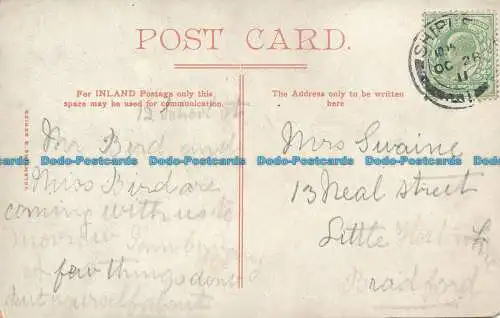 POST CARD.
For INLAND Postage only this
space may be used for communication.
The Address only to be written
here
SHIPLEY
OC 26
11
VALENTINE'S SERIES
Mr Bird and
Miss Bird are
coming with us to
morrow
few things dont
put yourself about
Mrs Swaine
13 Neal Street
Little Horton
Bradford
Dodo-Postcards Dodo-Postcards Dodo-Postcards Dodo-Postcards Dodo-Postcards